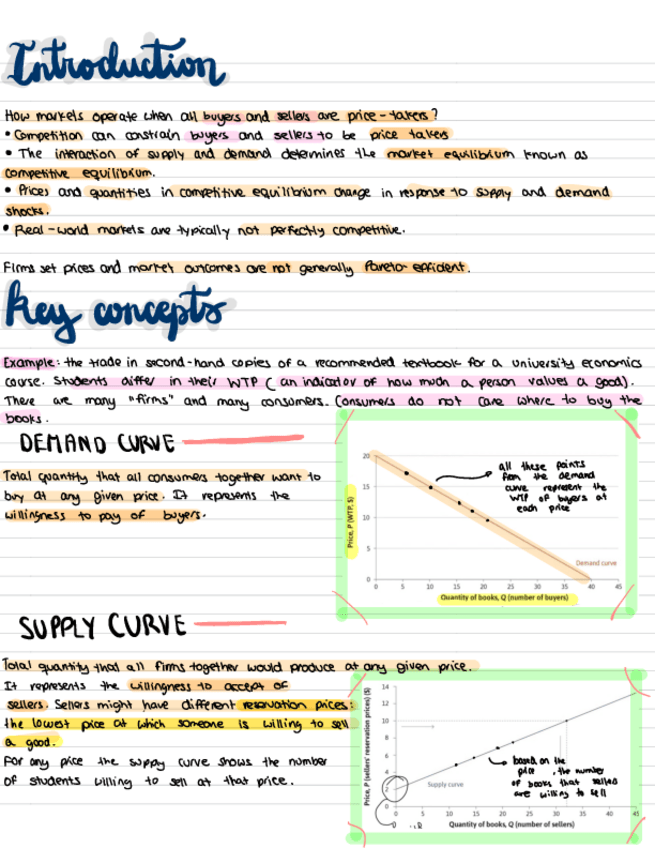 Introduction
How markets operate when all buyers and sellers are price-takers?
• Competition can constrain buyers and sellers to be price takers
• The interaction of supply and demand determines the market equilibrium known as
competitive equilibrium.
• Prices and quantities in competitive equilibrium change in response to supply and demand
shocks.
• Real-world markets are typically not perfectly competitive.
Firms set prices and market outcomes are not generally Pareto efficient.
Key concepts
Example: the trade in second-hand copies of a recommended textbook for a university economics
course. Students differ in their WTP ( an indicator of how much a person values a good).
There are many "firms" and many consumers. Consumers do not care where to buy the
books.
DEMAND CURVE
Total quantity that all consumers together want to
buy at any given price. It represents the
willingness to pay of buyers.
Price, P (WTP, $)
20
15
10
5
0
all these points
from the demand
curve represent the
WTP of buyers at
each price
Demand curve
0 5 10 15 20 25 30 35 40 45
Quantity of books, Q (number of buyers)
SUPPLY CURVE
Total quantity that all firms together would produce at any given price.
It represents the willingness to accept of
sellers. Sellers might have different reservation prices:
the lowest price at which someone is willing to sell
a good.
For any price the supply curve shows the number
of students willing to sell at that price.
Price, P (sellers' reservation prices) ($)
14
12
10
8
6
4
2
0
Supply curve
based on the
price, the number
of books that sellers
are willing to sell
0 5 10 15 20 25 30 35 40 45
Quantity of books, Q (number of sellers)